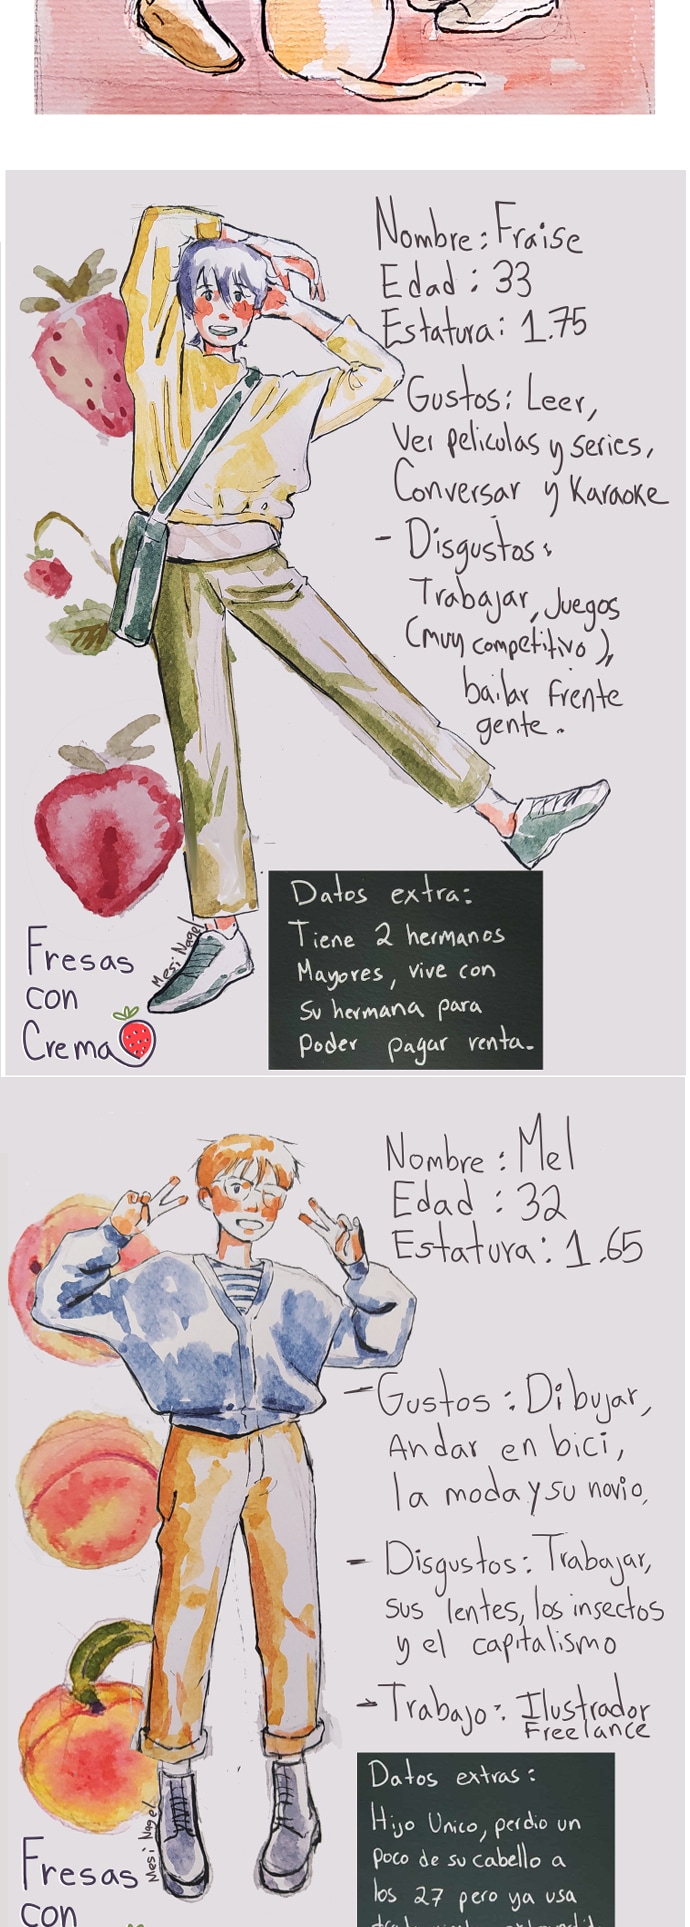 Nombre: Fraise
Edad : 33
Estatura: 1.75
- Gustos: Leer,
Ver peliculas y series,
Conversar y Karaoke
- Disgustos:
Trabajar, Juegos
(muy competitivo),
bailar frente
gente.
Datos extra:
Tiene 2 hermanos
Mayores, vive con
su hermana para
poder pagar renta.
Mesi Nagel
Fresas
con
Crema
Nombre : Mel
Edad : 32
Estatura: 1.65
- Gustos : Dibujar,
Andar en bici,
la moda y su novio.
- Disgustos: Trabajar,
sus lentes, los insectos
y el capitalismo
- Trabajo: Ilustrador
Freelance
Datos extras:
Hijo Unico, perdio un
poco de su cabello a
los 27 pero ya usa
Mesi Nagel
Fresas
con